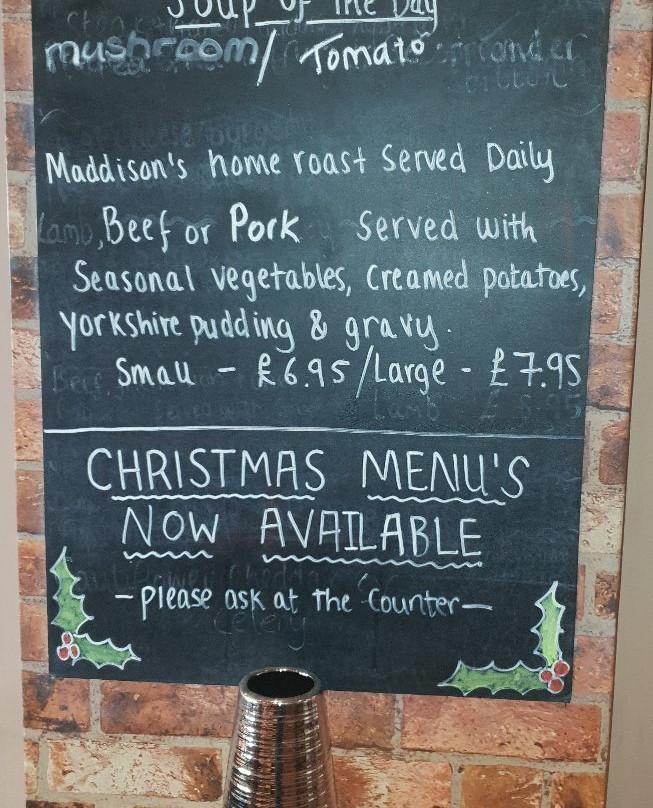 Soup of The Day
mushroom / Tomato
Maddison's home roast Served Daily
Lamb, Beef or Pork Served with
Seasonal vegetables, Creamed potatoes,
Yorkshire pudding & gravy.
Small - £6.95 / Large - £7.95
CHRISTMAS MENU'S
NOW AVAILABLE
- Please ask at the Counter -